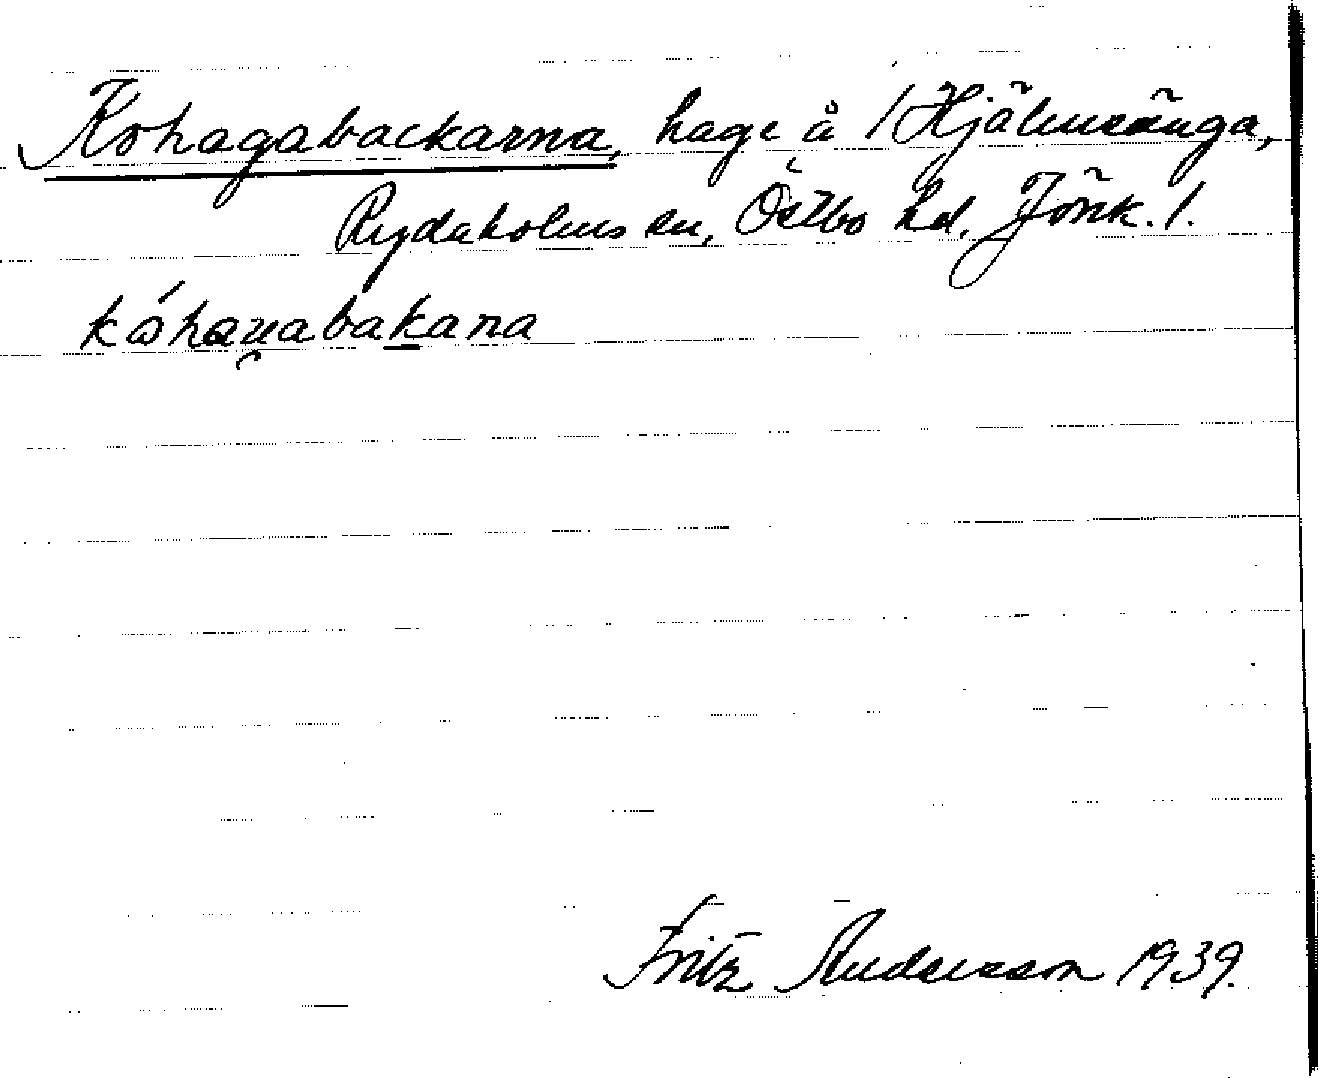 Kohagabackarna, hage å 1 Hjälmsänga,
Rydaholms sn, Östbo hd. Jönk. l.
kóhaṷabakana
Fritz Andersson 1939.